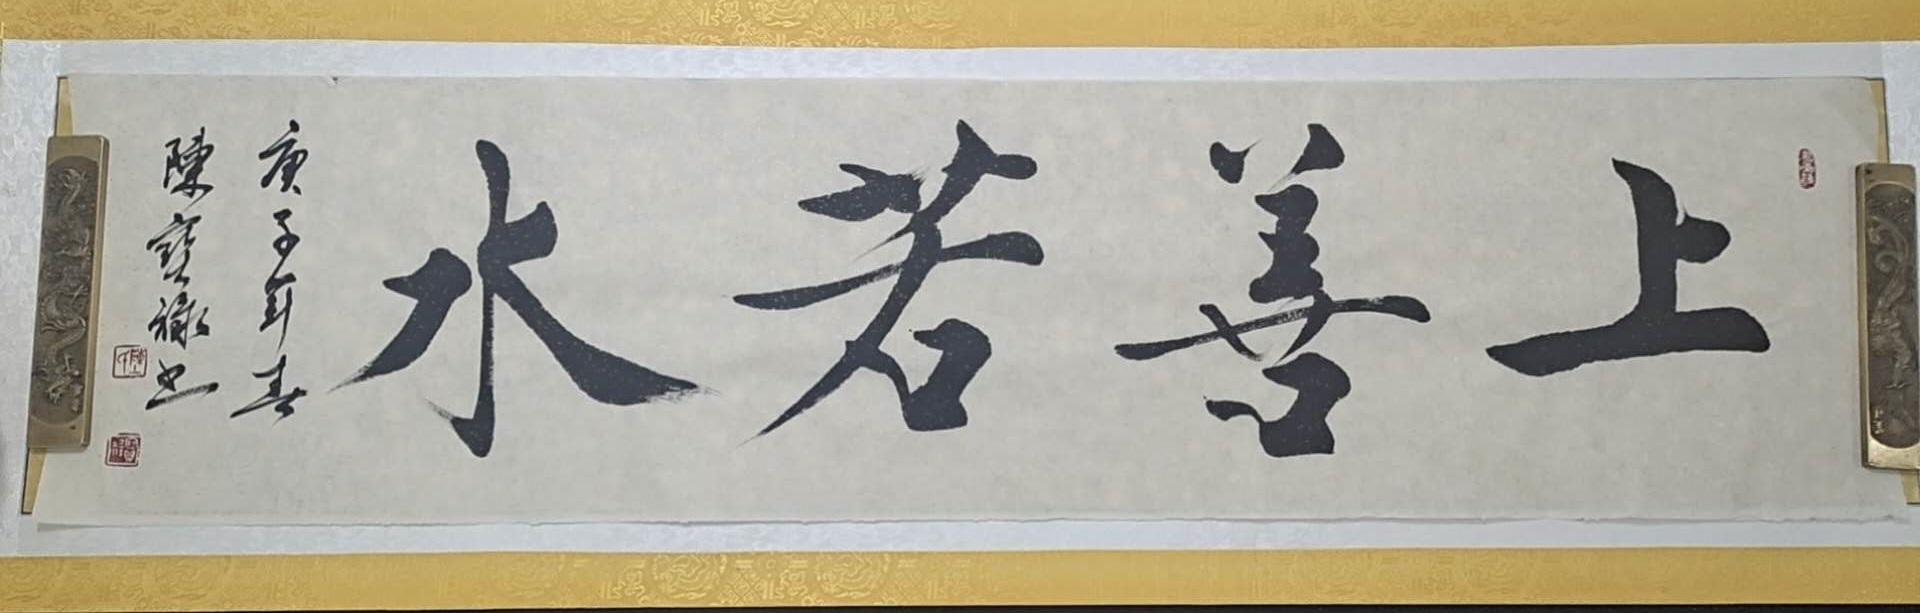 上善若水
庚子年春
陳寶祿書